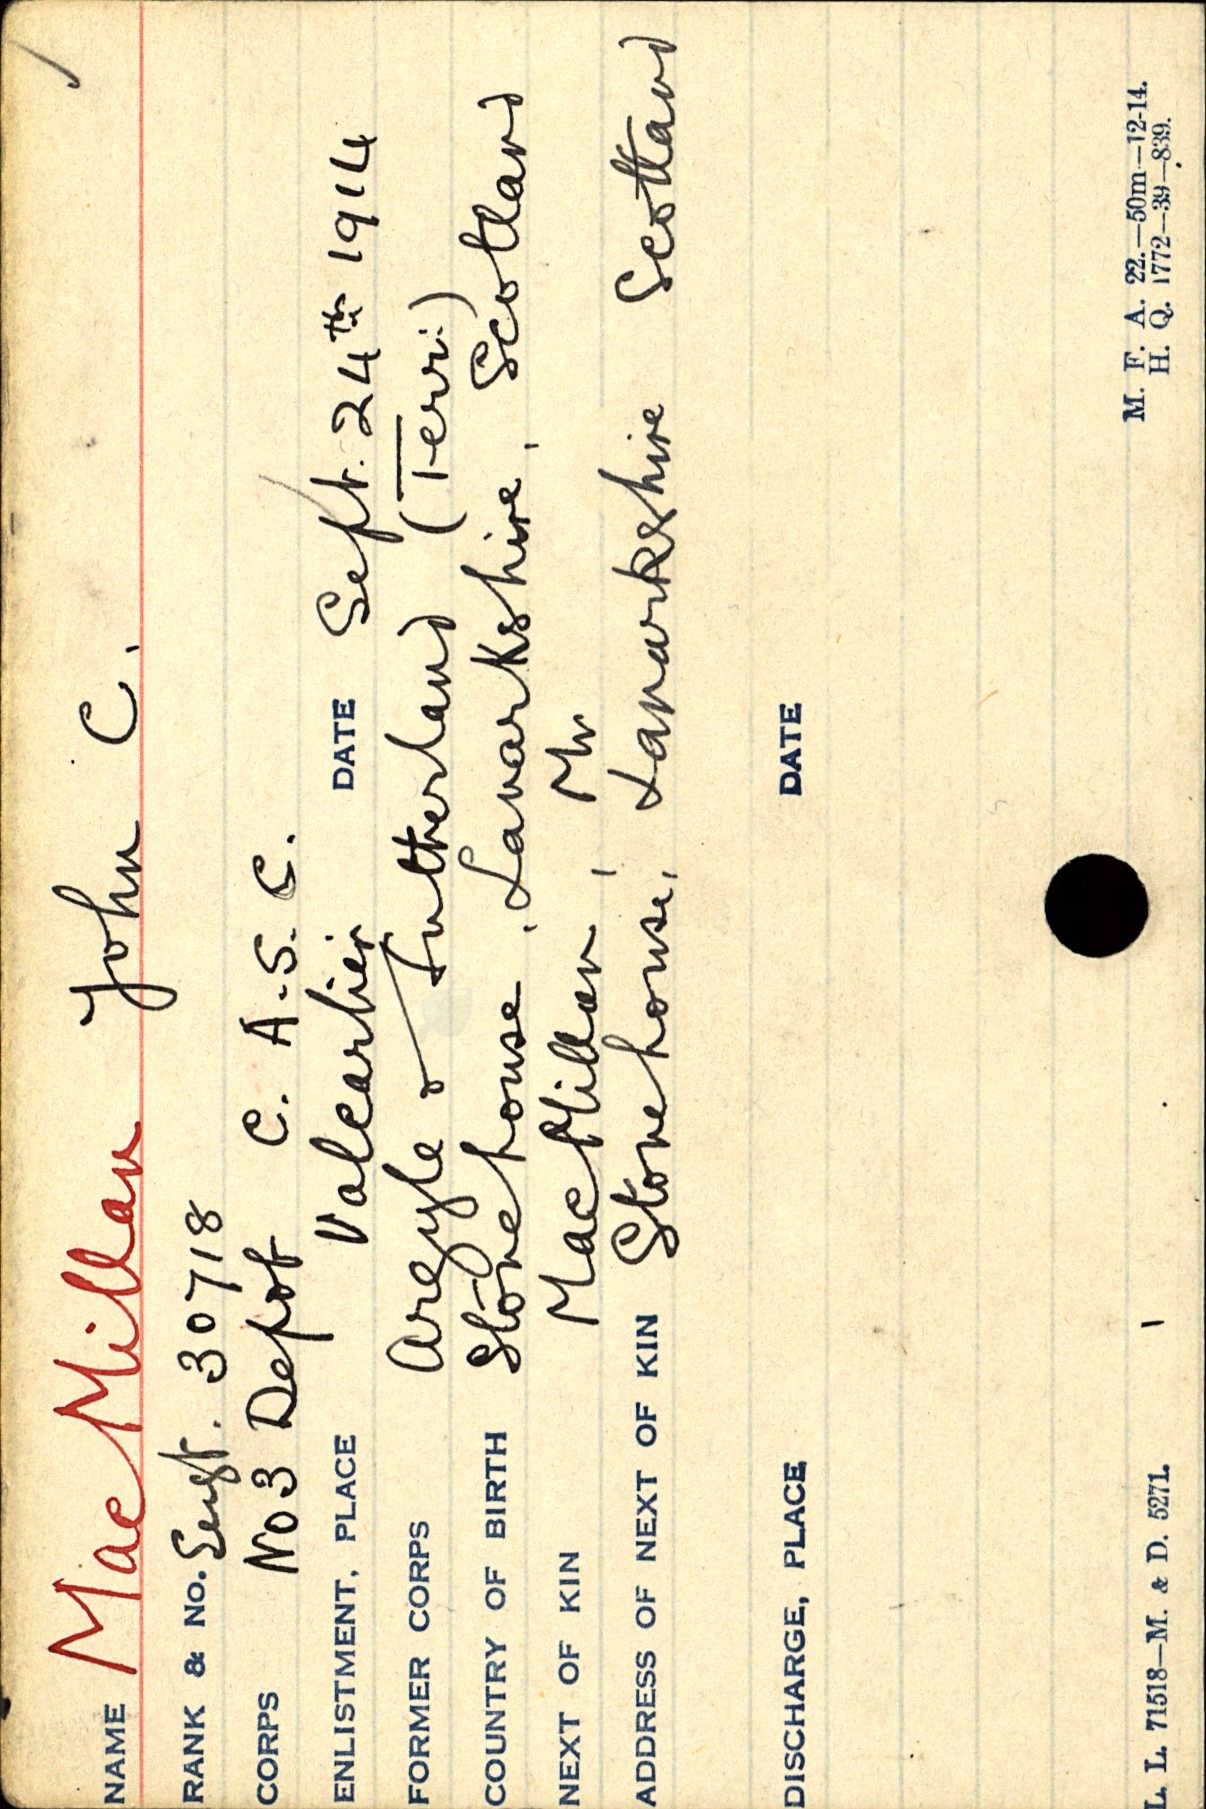 NAME MacMillan John C.
RANK & No. Sergt. 30718
CORPS No 3 Depot C. A. S. C.
ENLISTMENT, PLACE Valcartier DATE Sept. 24th 1914
FORMER CORPS Argyle & Sutherland (Terr:)
COUNTRY OF BIRTH Stonehouse, Lanarkshire, Scotland
NEXT OF KIN MacMillan, Mr
ADDRESS OF NEXT OF KIN Stonehouse, Lanarkshire Scotland
DISCHARGE, PLACE DATE
L. L. 71518—M. & D. 5271. M. F. A. 22.—50m—12-14.
H. Q. 1772—39—839.